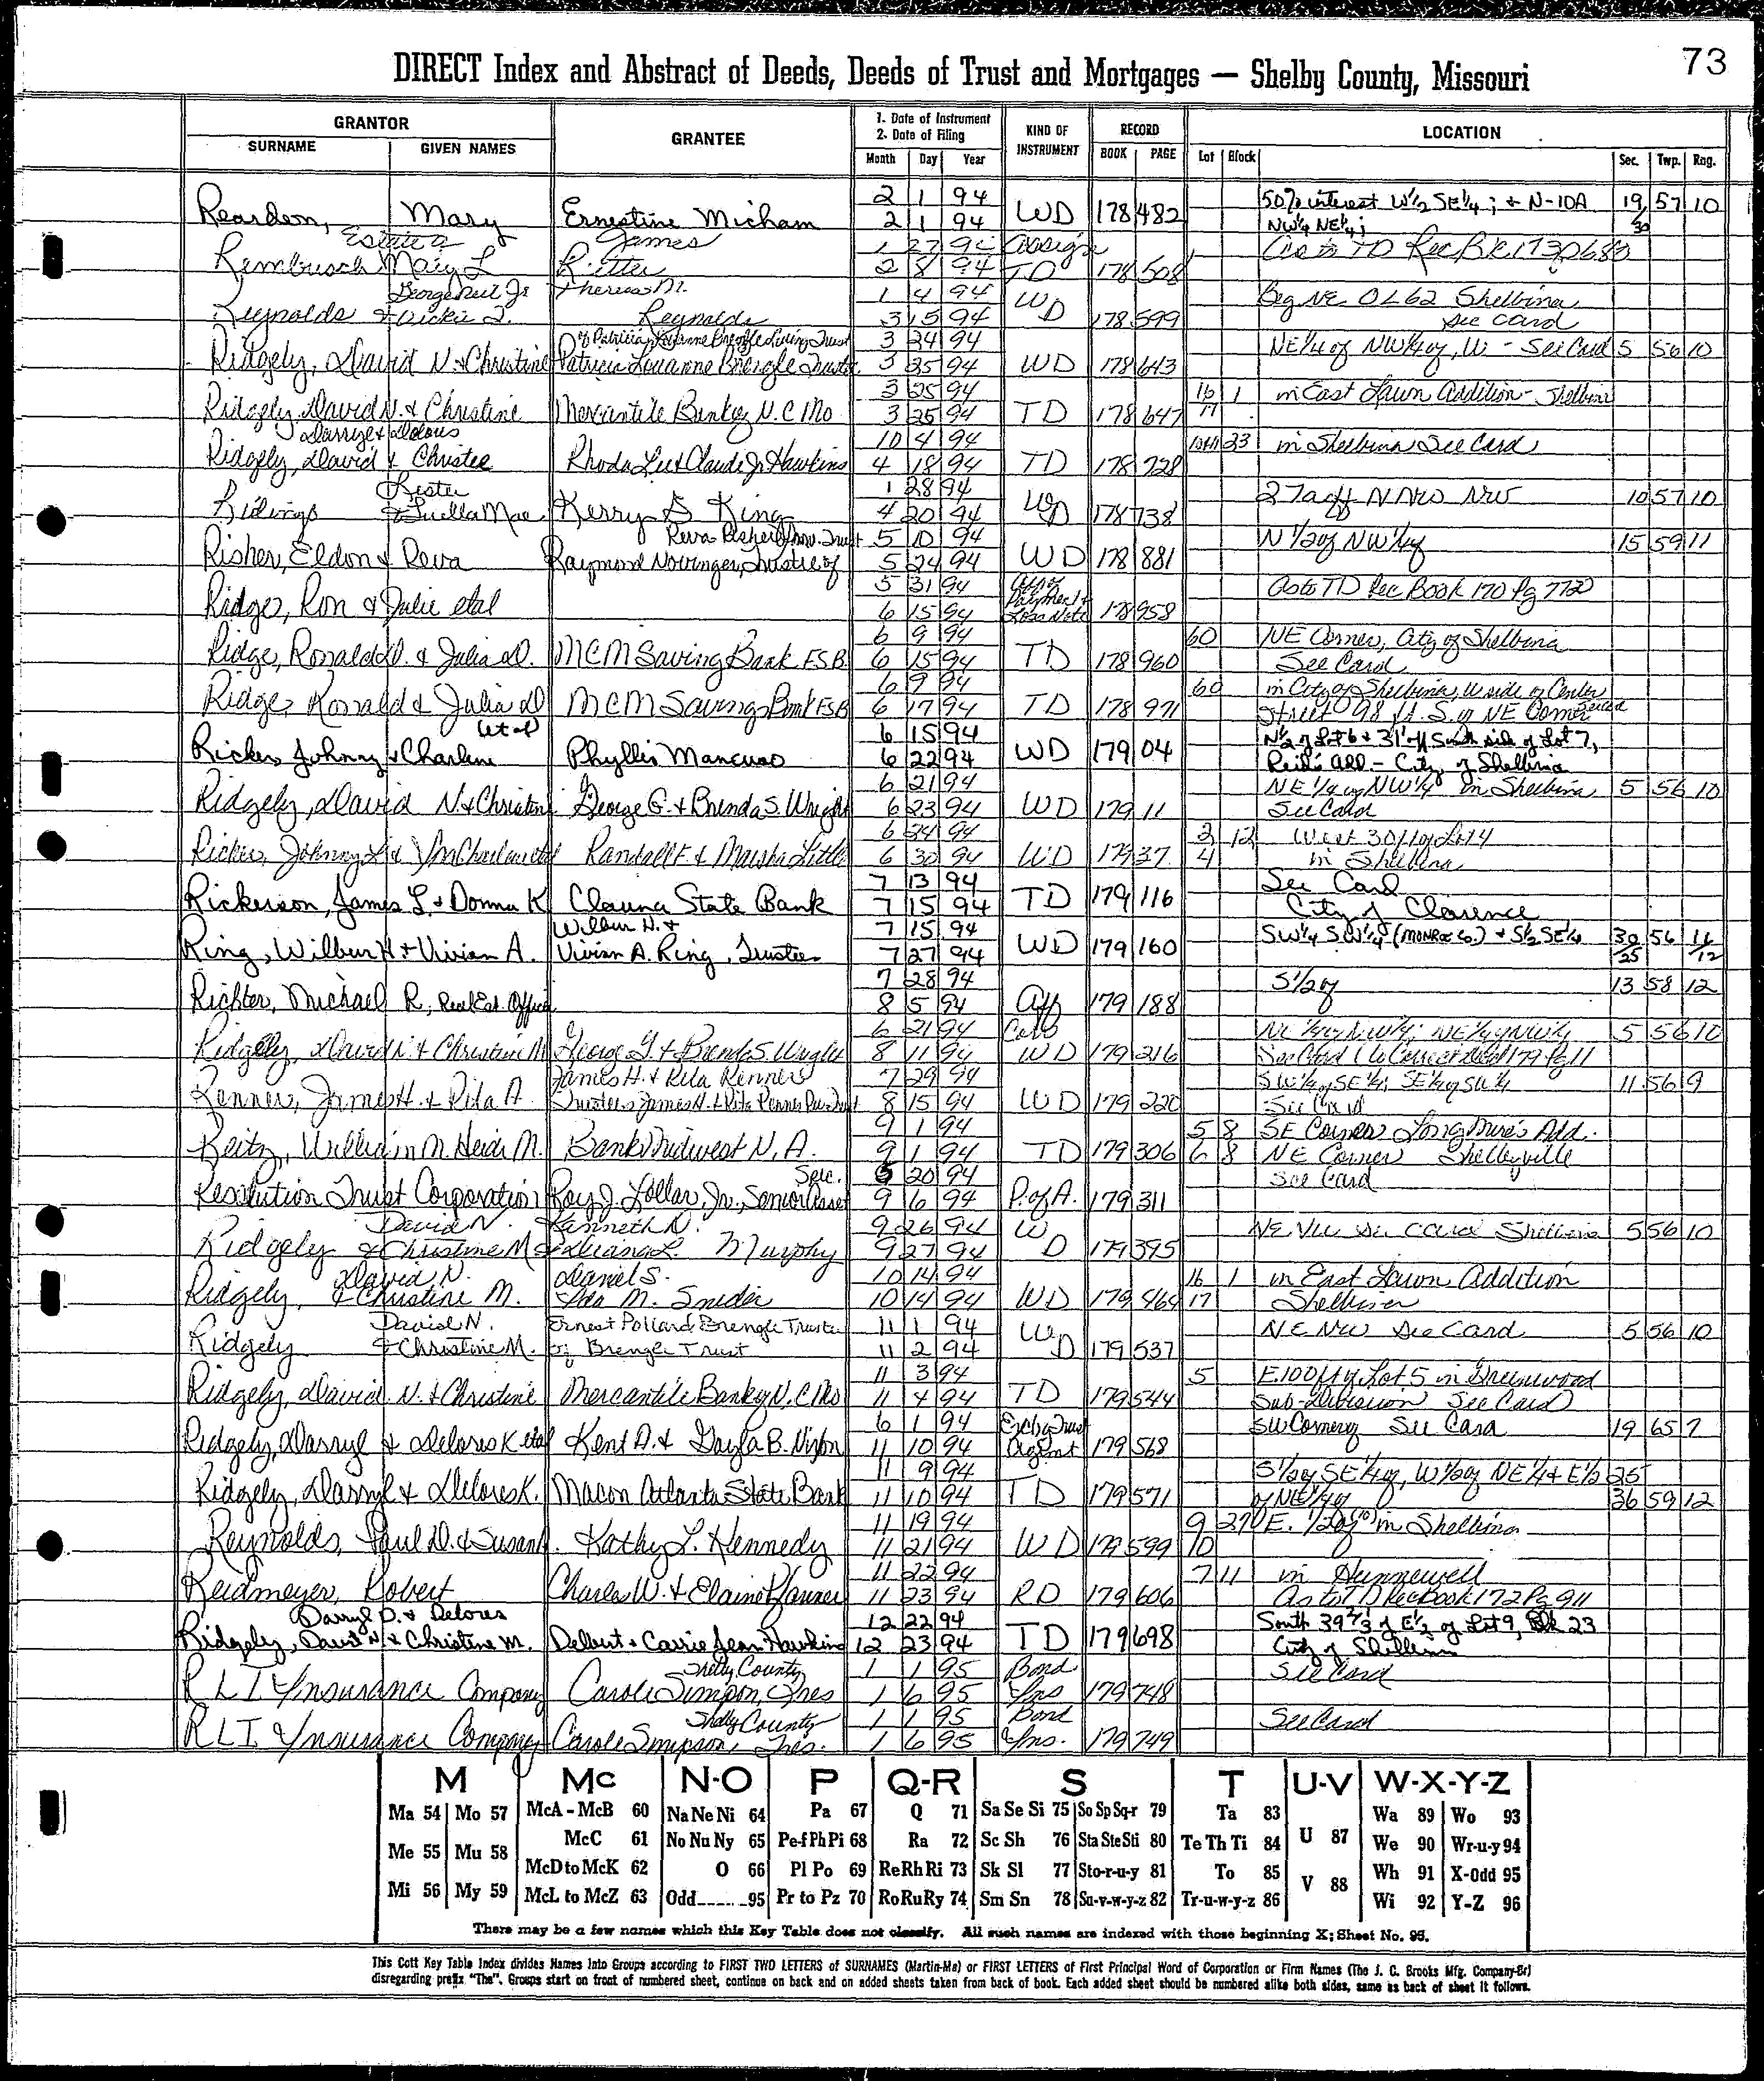 73
DIRECT Index and Abstract of Deeds, Deeds of Trust and Mortgages — Shelby County, Missouri
GRANTOR GRANTEE 1. Date of Instrument 2. Date of Filing KIND OF INSTRUMENT RECORD LOCATION
SURNAME GIVEN NAMES Month Day Year BOOK PAGE Lot Block Sec. Twp. Rng.
2 1 94 50% interest W½ SE¼; + N-10A 19 57 10
Reardon, Mary Ernestine Micham 2 1 94 WD 178 482 NW¼ NE¼; 30
Estate of James 1 27 94 Assign As to TD Rec BK 173
Rembusch Mary L Ritter 2 8 94 TD 178 508
George Neil Jr Theresa M. 1 4 94 WD Beg NE OL 62 Shelbina
Reynolds & Vickie J. Reynolds 3 15 94 178 599 See Card
of Patricia Louanne Brengle Living Trust 3 24 94 NE¼ of NW¼ of, W - See Card 5 56 10
Ridgely, David N. & Christine Patricia Louanne Brengle Trustee 3 25 94 WD 178 643
3 25 94 16 1 in East Lawn Addition - Shelbina
Ridgely, David N. & Christine Mercantile Bank of N.C Mo 3 25 94 TD 178 647 17
Darryl & Delores 10 4 94 23 in Shelbina See Card
Ridgely, David & Christee Rhoda Lee & Claude Jr. Hawkins 4 18 94 TD 178 728
Lester 1 28 94 27a off N NW NW 10 57 10
Ridings & Luella Mae Kerry D King 4 20 94 WD 178 738
Reva Risher Trust 5 10 94 N 1/2 of NW¼ of 15 59 11
Risher, Eldon & Reva Raymond Novinger, Trustee of 5 24 94 WD 178 881
5 31 94 As to TD Rec Book 170 Pg 772
Ridge, Ron & Julie etal 6 15 94 Payment Loss Note 178 958
6 9 94 60 NE Corner, City of Shelbina
Ridge, Ronald D. & Julia D. MCM Saving Bank FSB 6 15 94 TD 178 960 See Card
6 9 94 60 in City of Shelbina, W side of Center
Ridge, Ronald & Julia D MCM Savings Bank FSB 6 17 94 TD 178 971 Street 98 ft. S. of NE Corner See Card
et al 6 15 94 N½ of Lot 6 & 31' off South side of Lot 7,
Ricker, Johnny & Charlene Phyllis Mancuso 6 22 94 WD 179 04 Reid's Add. - City of Shelbina
6 21 94 NE¼ of NW¼ in Shelbina 5 56 10
Ridgely, David N. & Christine George G. & Brenda S. Wright 6 23 94 WD 179 11 See Card
6 24 94 3 12 West 30 ft of Lot 4
Ricker, Johnny L. & Charlene etal Randall F. & Marsha Little 6 30 94 WD 179 37 4 in Shelbina
7 13 94 See Card
Rickerson, James L. & Donna K Clarence State Bank 7 15 94 TD 179 116 City of Clarence
Wilbur H. & 7 15 94 SW¼ SW¼ (MONROE Co.) + S½ SE¼ 30 56 11
Ring, Wilbur H. & Vivian A. Vivian A. Ring, Trustees 7 27 94 WD 179 160 25 12
7 28 94 S½ of 13 58 12
Richter, Michael R., Real Est. Officer 8 5 94 Aff 179 188
6 21 94 Corr NE¼ of NW¼; NE¼ of NW¼ 5 56 10
Ridgely, David N. & Christine M George G. & Brenda S. Wright 8 11 94 WD 179 216 See Card (to Correct Deed 179 Pg 11
James H. & Rita Renner 7 29 94 SW¼ of SE¼; SE¼ of SW¼ 11 56 9
Renner, James H. & Rita A. Trustees James H. & Rita Renner Trust 8 15 94 WD 179 220 See Card
9 1 94 5 8 SE Corner Longmire's Add.
Reitz, William M. Heidi M. Bank Midwest N.A. 9 1 94 TD 179 306 6 8 NE Corner Shelbyville
Spec. 20 94 See Card
Resolution Trust Corporation Roy J. Lollar, Jr., Senior Asset 9 6 94 P. of A. 179 311
David N. Kenneth N. 9 26 94 WD NE NW See Card Shelbina 5 56 10
Ridgely & Christine M & Diana L. Murphy 9 27 94 179 395
David N. Daniel S. 10 14 94 16 1 in East Lawn Addition
Ridgely, & Christine M. Ida M. Snider 10 14 94 WD 179 464 17 Shelbina
David N. Ernest Pollard Brengle Trustee 11 1 94 NE NW See Card 5 56 10
Ridgely & Christine M. of Brengle Trust 11 2 94 WD 179 537
11 3 94 5 E. 100 ft of Lot 5 in Greenwood
Ridgely, David N. & Christine Mercantile Bank of N.C Mo 11 4 94 TD 179 544 Sub-Division See Card
6 1 94 SW Corner of See Card 19 65 7
Ridgely, Darryl & Delores K etal Kent A. & Gayla B. Nixon 11 10 94 Agmt 179 568
11 9 94 S½ of SE¼ of, W½ of NE¼ & E½ 25
Ridgely, Darryl & Delores K. Macon Atlanta State Bank 11 10 94 TD 179 571 of NE¼ of 36 59 12
11 19 94 9 27 E. 1/2 of 10 in Shelbina
Reynolds, Paul D. & Susan Kathy L. Kennedy 11 21 94 WD 179 599 10
11 22 94 7 11 in Hunnewell
Reidmeyer, Robert Charles W. & Elaine 11 23 94 RD 179 606 As to TD Rec Book 172 Pg 911
Darryl D. & Delores 12 22 94 South 39 2/3' of E½ of Lot 9, Blk 23
Ridgely, David N. & Christine M. Delbert & Carrie Jean Hawkins 12 23 94 TD 179 698 City of Shelbina
Shelby County 1 1 95 Bond See Card
RLI Insurance Company Carole Simpson, Tres 1 6 95 Ins 179 748
Shelby County 1 1 95 Bond See Card
RLI Insurance Company Carole Simpson, Tres. 1 6 95 Ins. 179 749
M Mc N-O P Q-R S T U-V W-X-Y-Z
Ma 54 Mo 57 McA - McB 60 Na Ne Ni 64 Pa 67 Q 71 Sa Se Si 75 So Sp Sq-r 79 Ta 83 Wa 89 Wo 93
Me 55 Mu 58 McC 61 No Nu Ny 65 Pe-f Ph Pi 68 Ra 72 Sc Sh 76 Sta Ste Sti 80 Te Th Ti 84 U 87 We 90 Wr-u-y 94
McD to McK 62 O 66 Pl Po 69 Re Rh Ri 73 Sk Sl 77 Sto-r-u-y 81 To 85 V 88 Wh 91 X-Odd 95
Mi 56 My 59 McL to McZ 63 Odd 95 Pr to Pz 70 Ro Ru Ry 74 Sm Sn 78 Su-v-w-y-z 82 Tr-u-w-y-z 86 Wi 92 Y-Z 96
There may be a few names which this Key Table does not classify. All such names are indexed with those beginning X; Sheet No. 95.
This Cott Key Table Index divides Names into Groups according to FIRST TWO LETTERS of SURNAMES (Martin-Ma) or FIRST LETTERS of First Principal Word of Corporation or Firm Names (The J. C. Brooks Mfg. Company-Br)
disregarding prefix "The". Groups start on front of numbered sheet, continue on back and on added sheets taken from back of book. Each added sheet should be numbered alike both sides, same as back of sheet it follows.